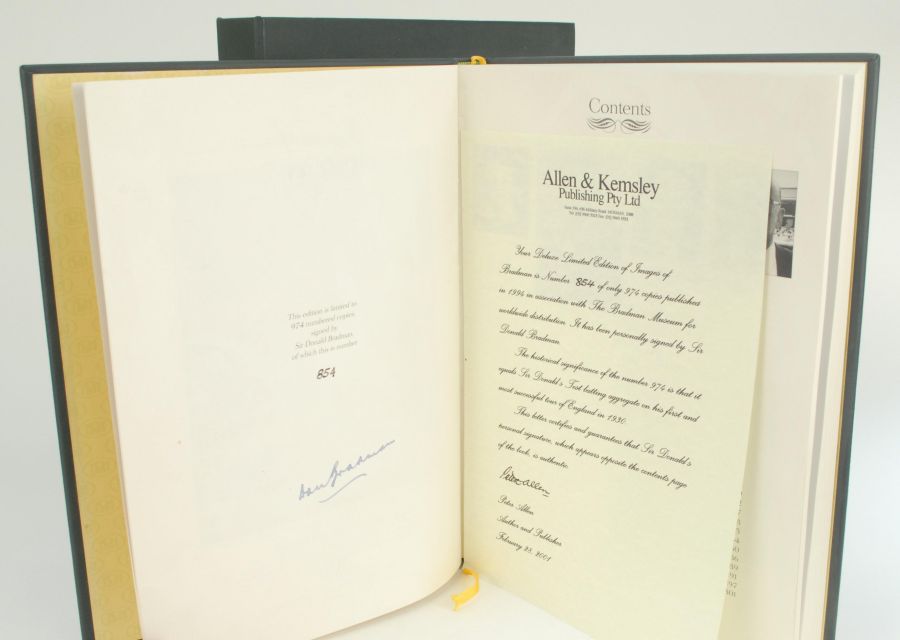 This edition is limited to
974 numbered copies
signed by
Sir Donald Bradman,
of which this is number
854
Don Bradman
Contents
Allen & Kemsley
Publishing Pty Ltd
Your Deluxe Limited Edition of Images of
Bradman is Number 854 of only 974 copies published
in 1994 in association with The Bradman Museum for
worldwide distribution. It has been personally signed by Sir
Donald Bradman.
The historical significance of the number 974 is that it
equals Sir Donald's Test batting aggregate on his first and
most successful tour of England in 1930.
This letter certifies and guarantees that Sir Donald's
personal signature, which appears opposite the contents page
of the book, is authentic.
Peter Allen
Peter Allen
Author and Publisher
February 28, 2001